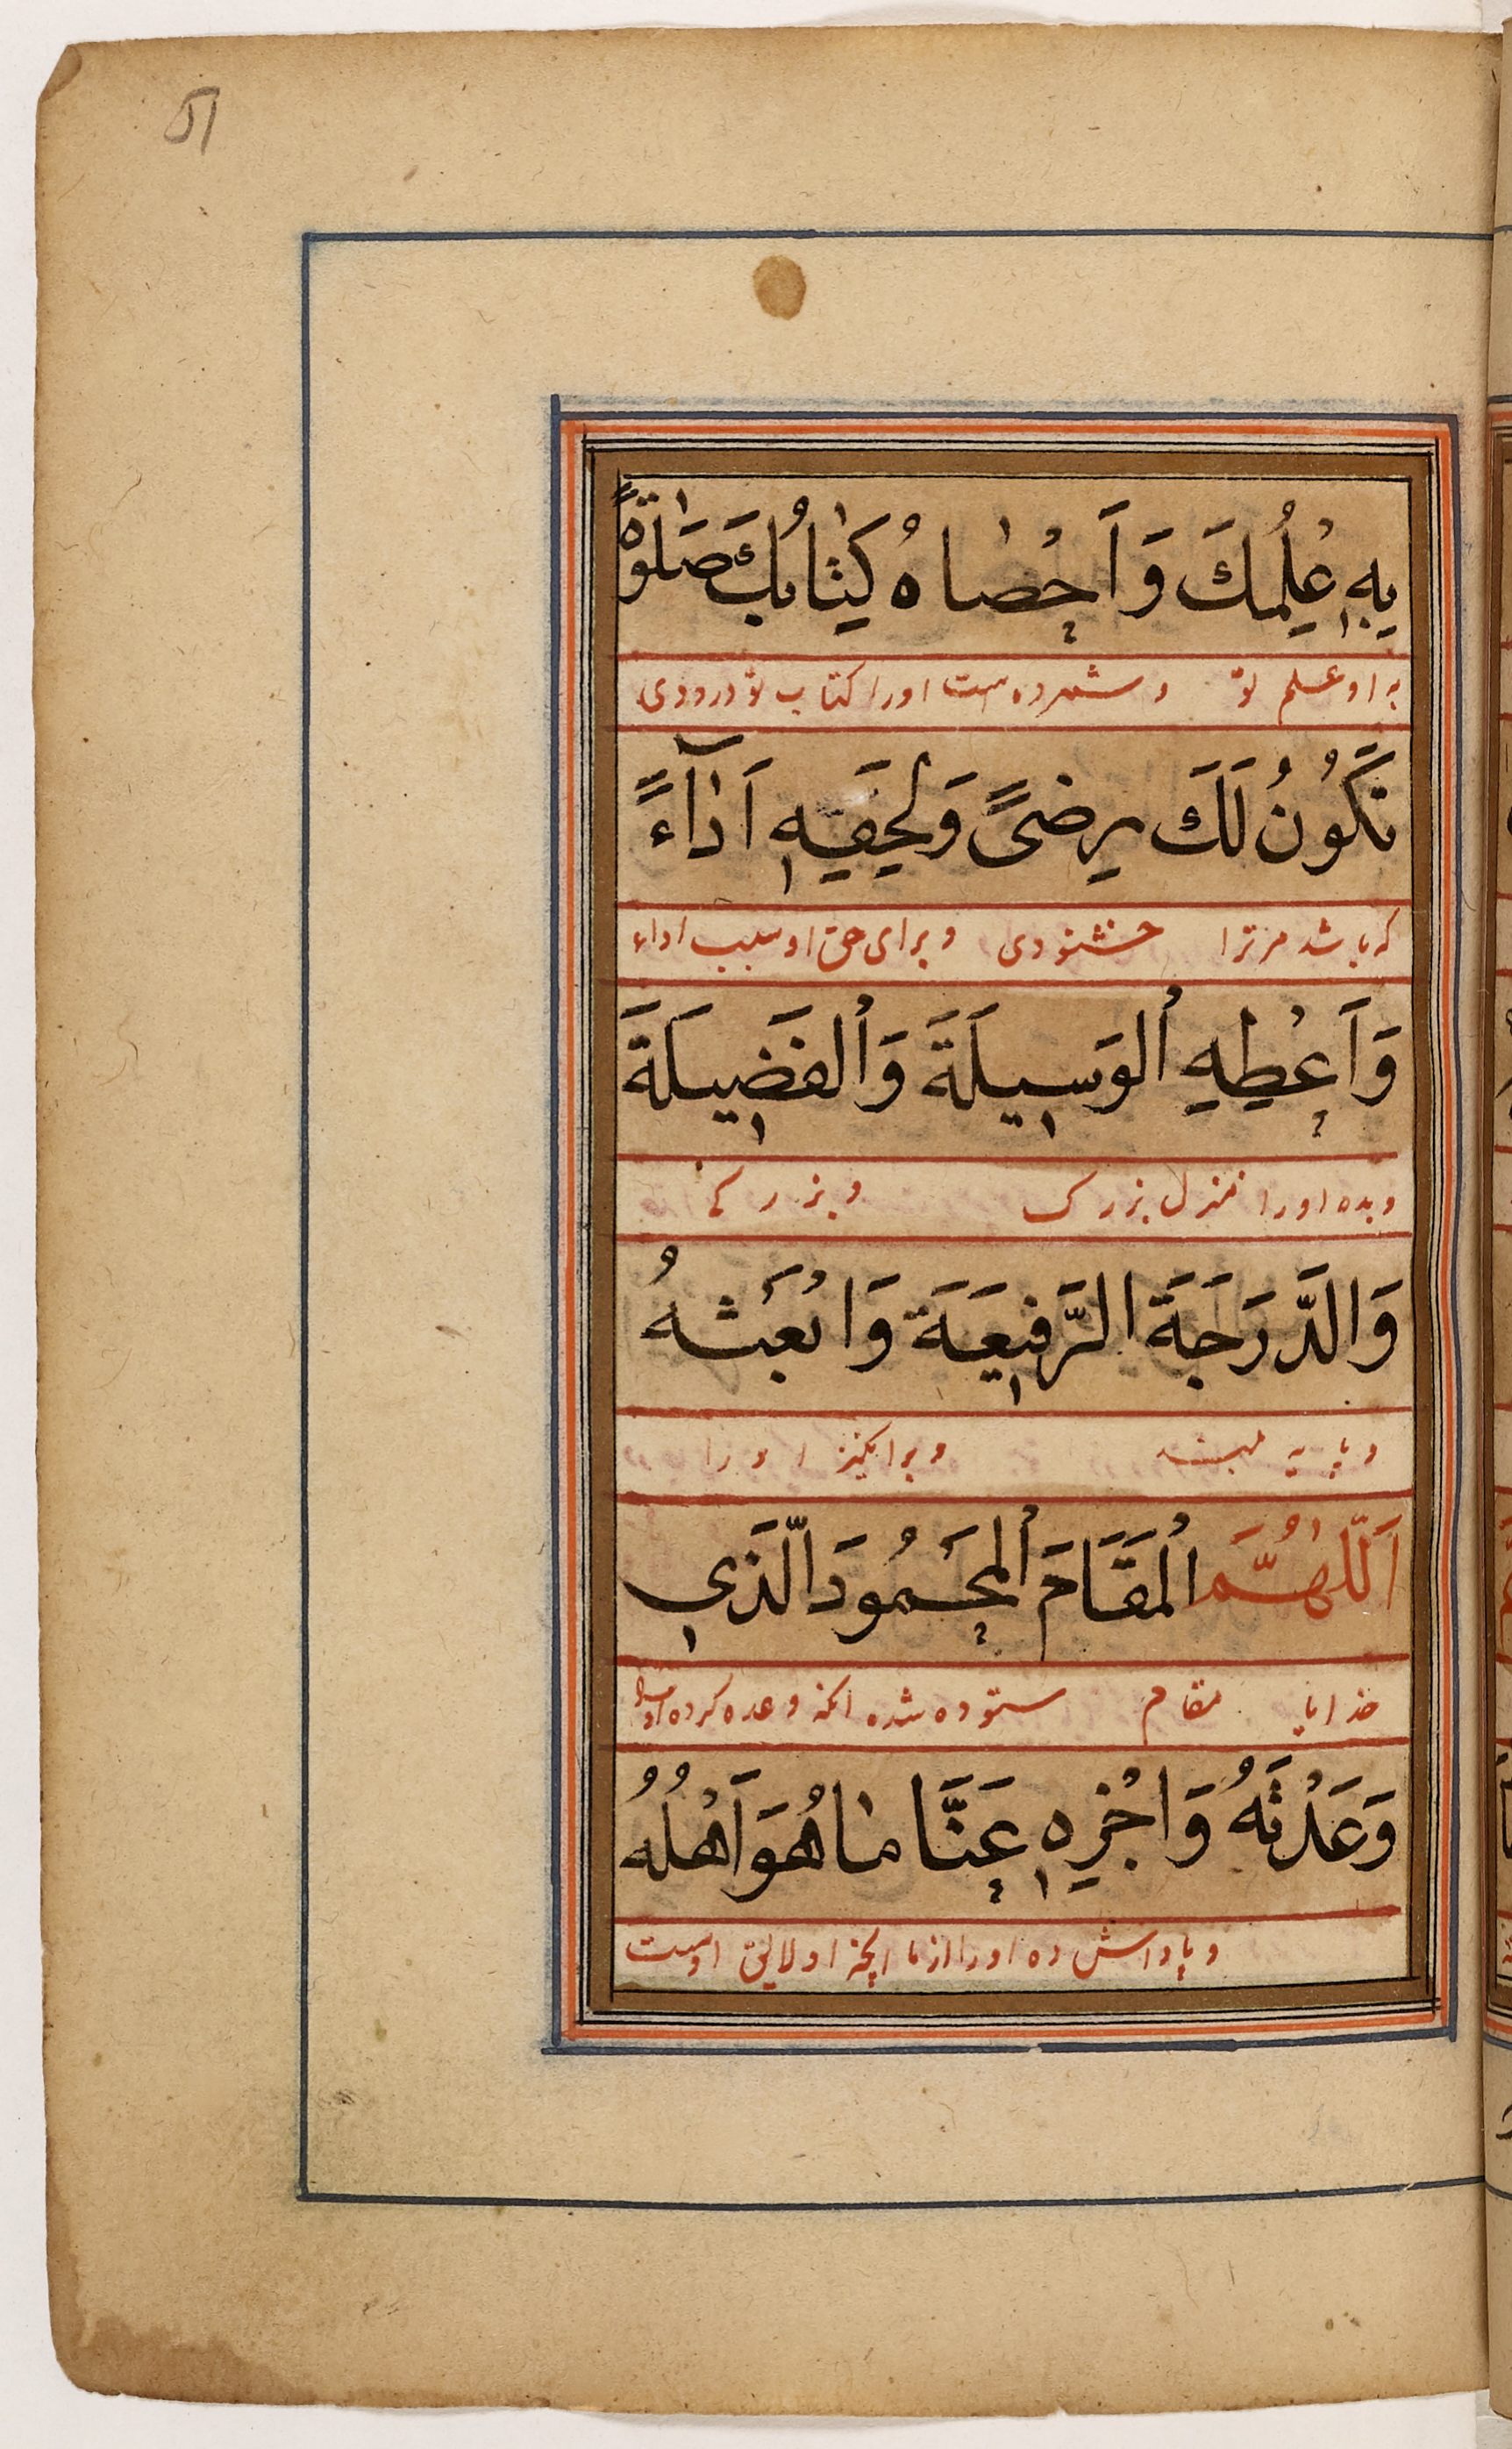 ۵۱
بِهِ عِلْمُكَ وَاَحْصَاهُ كِتَابُكَ صَلٰوةً
به او علم تو و شمرده است اورا کتاب تو درودی
تَكُونُ لَكَ رِضىً وَلِحَقِّهِ اَدَآءً
که باشد مر ترا خشنودی و برای حق او سبب اداء
وَاَعْطِهِ الْوَسِيلَةَ وَالْفَضِيلَةَ
و بده اورا منزل بزرک و بزرکے
وَالدَّرَجَةَ الرَّفِيعَةَ وَابْعَثْهُ
و پایه بلند و برانکیز اورا
اَللّٰهُمَّ الْمَقَامَ الْمَحْمُودَ الَّذِي
خدایا مقام ستوده شده انکه وعده کرده
وَعَدْتَهُ وَاجْزِهِ عَنَّا مَا هُوَ اَهْلُهُ
و پاداش ده اورا از ما انچه او لایق اوست